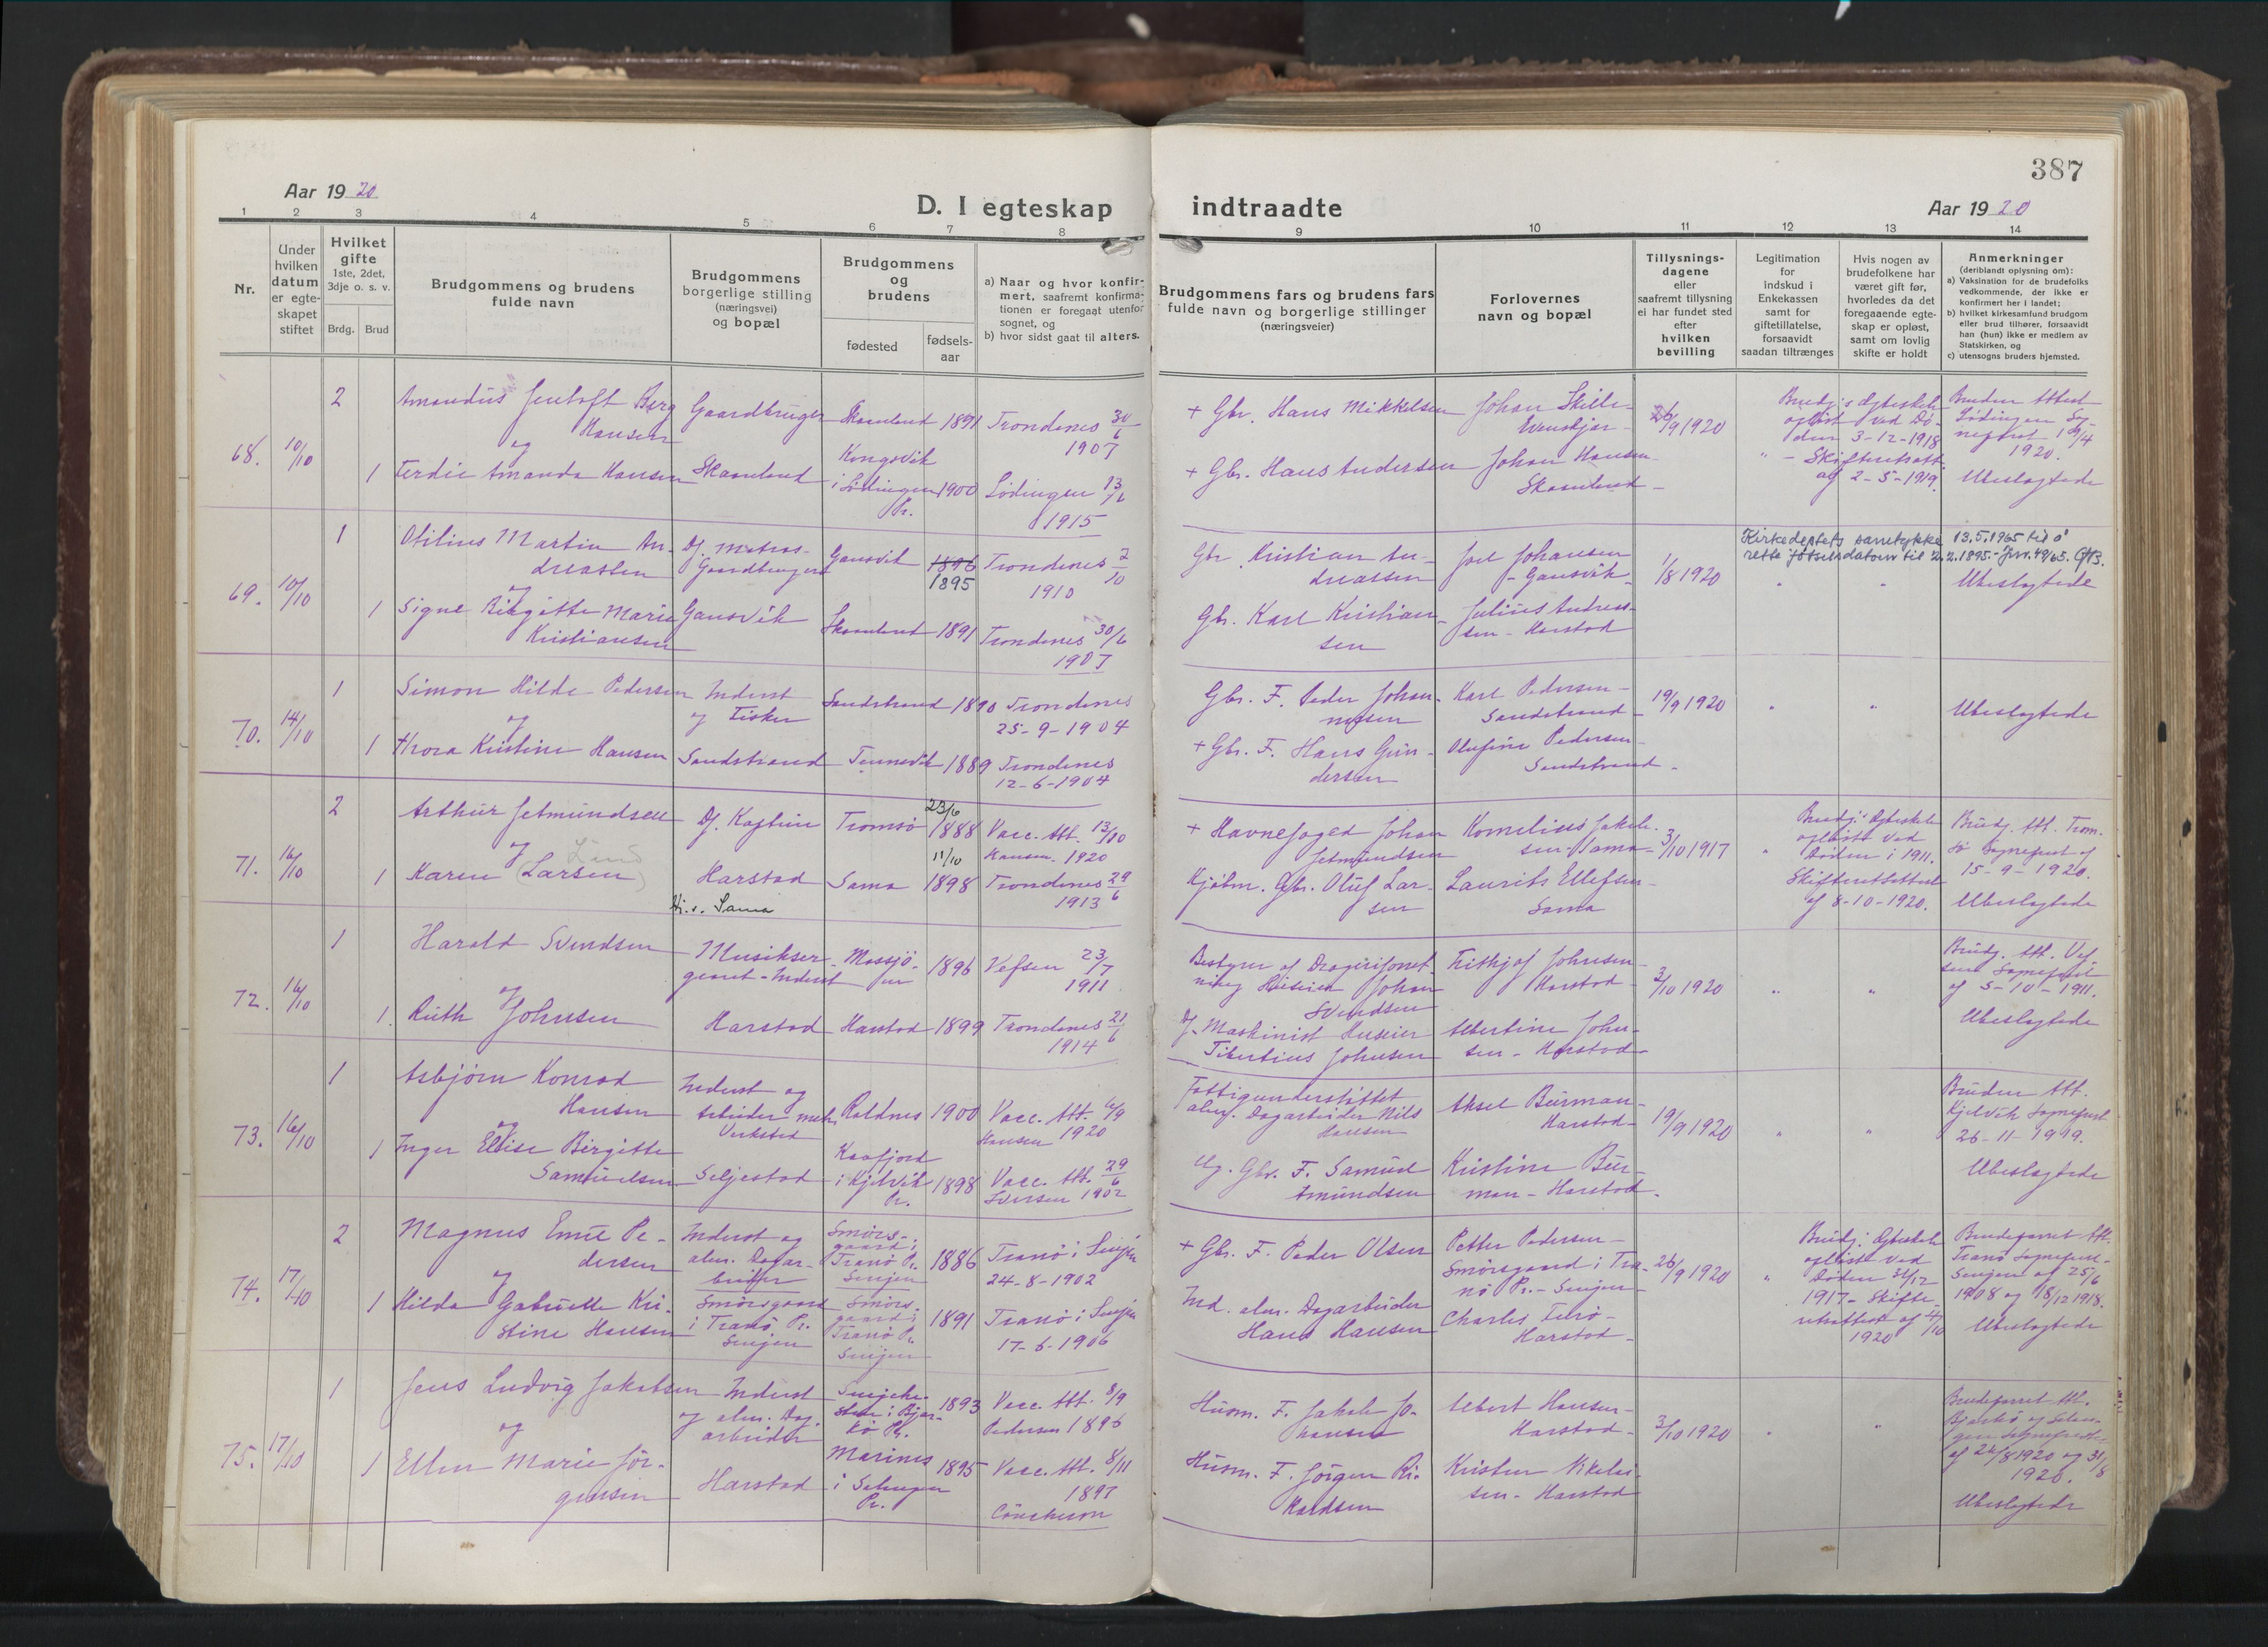 387
Aar 19 20
D. I egteskap indtraadte
Aar 19 20
1 2 3 4 5 6 7 8 9 10 11 12 13 14
Nr.
Under
hvilken
datum
er egte-
skapet
stiftet
Hvilket
gifte
1ste, 2det,
3dje o. s. v.
Brdg. Brud
Brudgommens og brudens
fulde navn
Brudgommens
borgerlige stilling
(næringsvei)
og bopæl
Brudgommens
og
brudens
fødested
fødsels-
aar
a) Naar og hvor konfir-
mert, saafremt konfirma-
tionen er foregaat utenfor
sognet, og
b) hvor sidst gaat til alters.
Brudgommens fars og brudens fars
fulde navn og borgerlige stillinger
(næringsveier)
Forlovernes
navn og bopæl
Tillysnings-
dagene
eller
saafremt tillysning
ei har fundet sted
efter
hvilken
bevilling
Legitimation
for
indskud i
Enkekassen
samt for
giftetillatelse,
forsaavidt
saadan tiltrænges
Hvis nogen av
brudefolkene har
været gift før,
hvorledes da det
foregaaende egte-
skap er opløst,
samt om lovlig
skifte er holdt
Anmerkninger
(deriblandt oplysning om):
a) Vaksination for de brudefolks
vedkommende, der ikke er
konfirmert her i landet;
b) hvilket kirkesamfund brudgom
eller brud tilhører, forsaavidt
han (hun) ikke er medlem av
Statskirken, og
c) utensogns bruders hjemsted.
68. 10/10
2
Amandus Jentoft Berg
Hansen
og
1 Ferdie Amanda Hansen
Gaardbruger
Skaanland
Skaanland 1891
Kongsvik
i Lødingen 1900
Pr.
Trondenes 30/6
1907
Lødingen 13/6
1915
+ Gbr. Hans Mikkelsen
+ Gbr. Hans Andersen
Johan Hansen
Skaanland
26/9 1920
Brudg's Ægteskab
opløst ved Dø-
den 3-12-1918
- Skifteretsatt.
af 2-5-1919.
Bruden Attest
Lødingen Sog-
neprest
1920.
Ubeslægtede
69. 10/10
1
Otilius Martin An-
dreassen
og
1 Signe Birgitte Marie
Kristiansen
Df. Matros-
Gaardbruger
Gansvik
Gansvik 1896
1895
Skaanland 1891
Trondenes 2/10
1910
Trondenes 30/6
1907
Gbr. Kristian An-
dreassen
Gbr. Karl Kristian-
sen
Joel Johansen
- Gansvik
Julius Andreas-
sen - Harstad
1/8 1920
Kirkedeptets samtykke 13.5.1965 til å
rette fødselsdatoen til 2.2.1895.- Jnr. 49/65.
Ubeslægtede
70. 14/10
1
Simon Hilde Pedersen
og
1 Thora Kristine Hansen
Inderst
og Fisker
Sandstrand
Sandstrand 1890
Tennevik 1889
Trondenes
25-9-1904
Trondenes
12-6-1904
Gbr. F. Peder Johan-
nessen
+ Gbr. F. Hans Gun-
dersen
Karl Pedersen -
Sandstrand
Olufine Pedersen
Sandstrand -
19/9 1920
Ubeslægtede
71. 16/10
2
Arthur Jetmundsen
og
1 Karen (Larsen) Lund
Df. Kaptein
Harstad
Sama
Tromsø 23/6 1888
Sama 11/10 1898
Vacc. Att. 13/10
Hansen. 1920
Trondenes 29/6
1913
+ Havnefoged Johan
Jetmundsen
Kjøbm. Gbr. Oluf Lar-
sen
Kornelius Jakob-
sen Sama
Laurits Ellefsen -
Sama
3/10 1917
Brudg. Ægteskab
opløst ved
Døden i 1911.
Skifteretsattest
af 8-10-1920.
Brudg. Att. Trom-
sø Sogneprest af
15-9-1920.
Ubeslægtede
72. 16/10
1
Harald Svendsen
og
1 Ruth Johnsen
Musikser-
geant - Inderst
Harstad
Mosjø-
en 1896
Harstad 1899
Vefsen 23/7
1911
Trondenes 21/6
1914
Johan
Svendsen
Df. Maskinist Huseier
Tibertius Johnsen
Frithjof Johnsen
Harstad
Albertine John-
sen - Harstad
3/10 1920
Brudg. Att. Vef-
sen Sogneprest
af 5-10-1911.
Ubeslægtede
73. 16/10
1
Asbjørn Konrad
Hansen
og
1 Inger Elise Birgitte
Samuelsen
Inderst og
Arbeider mek.
Verksted
Seljestad
Roldnes 1900
Kaafjord
i Kjelvik 1898
Pr.
Vacc. Att. 6/9
Hansen 1920
Vacc. Att. 29/6
Iversen 1902
Fattigunderstøttet
alm. Dagarbeider Nils
Hansen
Ug. Gbr. F. Samuel
Amundsen
Aksel Burman-
Harstad -
Kristine Bur-
man - Harstad.
19/9 1920
Bruden Att.
Kjelvik Sogneprest
26-11-1919.
Ubeslægtede
74. 17/10
2
Magnus Emil Pe-
dersen
og
1 Hilda Gabrielle Kri-
stine Hansen
Inderst og
alm. Dagar-
beider
Smørsgaard
i Tranø Pr.
Senjen
Smørs-
gaard i
Tranø Pr.
Senjen
1886
Smørs-
gaard i
Tranø Pr.
Senjen
1891
Tranø i Senjen
24-8-1902
Tranø i Senjen
17-6-1906
+ Gbr. F. Peder Olsen
Ind. alm. Dagarbeider
Hans Hansen
Petter Pedersen -
Smørsgaard i Tra-
nø Pr. - Senjen -
Charles
Harstad -
26/9 1920
Brudg. Ægteskab
opløst ved
Døden 31/12
1917 - Skifte-
retsattest af 4/10
1920
Brudeparret Att.
Tranø Sogneprest
Senjen af 25/6
1908 og 18/12 1918.
Ubeslægtede
75. 17/10
1
Jens Ludvig Jakobsen
og
1 Ellen Marie Jør-
gensen
Inderst
og alm. Dag-
arbeider
Harstad
i Bjar-
kø Pr.
1893
i Salangen
Pr.
1895
Vacc. Att. 8/9
Pedersen 1896
Vacc. Att. 8/11
1897
Husm. F. Jakob Jo-
hansen
Husm. F. Jørgen Ri-
kardsen
Albert Hansen -
Harstad -
Kristen Nikolai-
sen - Harstad
3/10 1920
Brudeparret Att.
Bjarkø og Salan-
gen Sogneprester
af 26/8 1920 og 31/8
1920.
Ubeslægtede